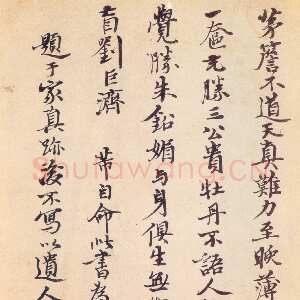 茅簷不道天真難力至暾薄
一奩尤勝三公貴牡丹不語人
覺勝朱鉛媚與身俱生無
首劉巨濟 芾自命此書為
題于家真跡後不寫以遺人
shufawang.cn